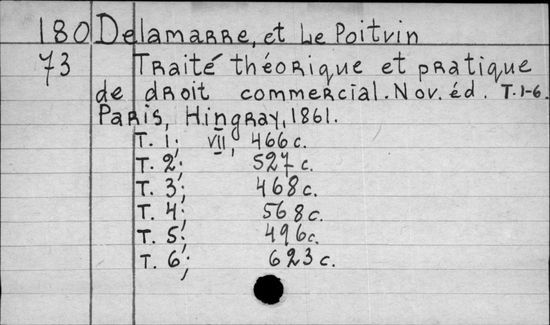 180 Delamarre, et Le Poitvin
73 Traité théorique et pratique
de droit commercial. Nov. éd. T. 1-6.
Paris, Hingray, 1861.
T. 1; VII, 466 c.
T. 2; 527 c.
T. 3; 468 c.
T. 4; 568 c.
T. 5; 496 c.
T. 6; 623 c.